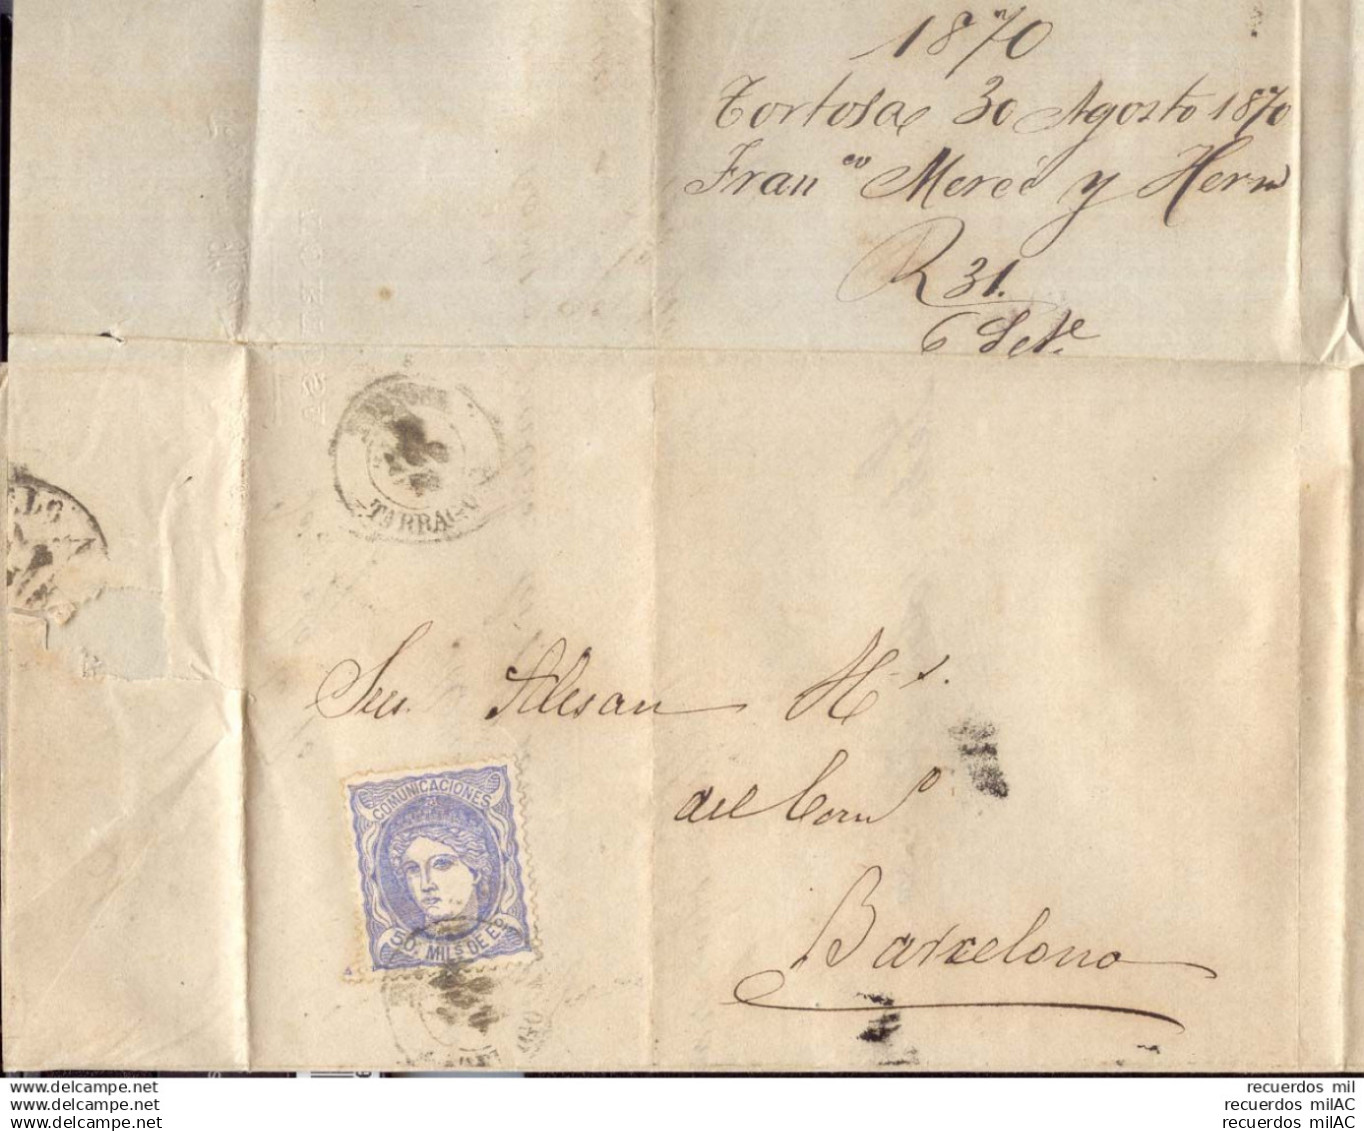 1870
Tortosa 30 Agosto 1870
Fran.co Mercé y Herm
R 31.
6 Set.e
TARRAGONA
Sres. Alesan H.s
del Com.o
COMUNICACIONES
50. MILS DE Eo.
Barcelona
www.delcampe.net
www.delcampe.net
www.delcampe.net
recuerdos mil
recuerdos milAC
recuerdos milAC